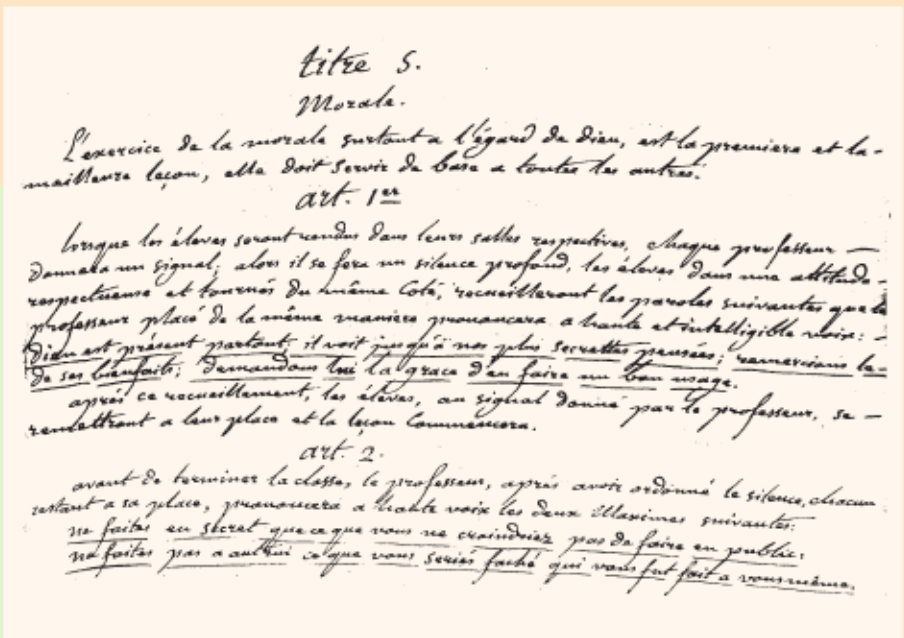 titre 5.
Morale.
L'exercice de la morale surtout a l'égard de dieu, est la premiere et la-
meilleure leçon, elle doit servir de base a toutes les autres.
art. 1er
lorsque les élèves seront rendus dans leurs salles respectives, chaque professeur —
donnera un signal; alors il se fera un silence profond, les élèves dans une attitude-
respectueuse et tournés du même coté, recueilleront les paroles suivantes que le
professeur placé de la même maniere prononcera a haute et intelligible voix: -
Dieu est présent partout, il voit jusqu'à nos plus secrettes pensées; remercions le-
de ses bienfaits; demandons lui la grace d'en faire un bon usage.
après ce recueillement, les élèves, au signal donné par le professeur, se —
remettront a leur place et la leçon commencera.
art. 2.
avant de terminer la classe, le professeur, après avoir ordonné le silence, chacun
restant a sa place, prononcera a haute voix les deux Maximes suivantes:
ne faites en secret que ce que vous ne craindriez pas de faire en public:
ne faites pas a autrui ce que vous seriés faché qui vous fut fait a vous même.